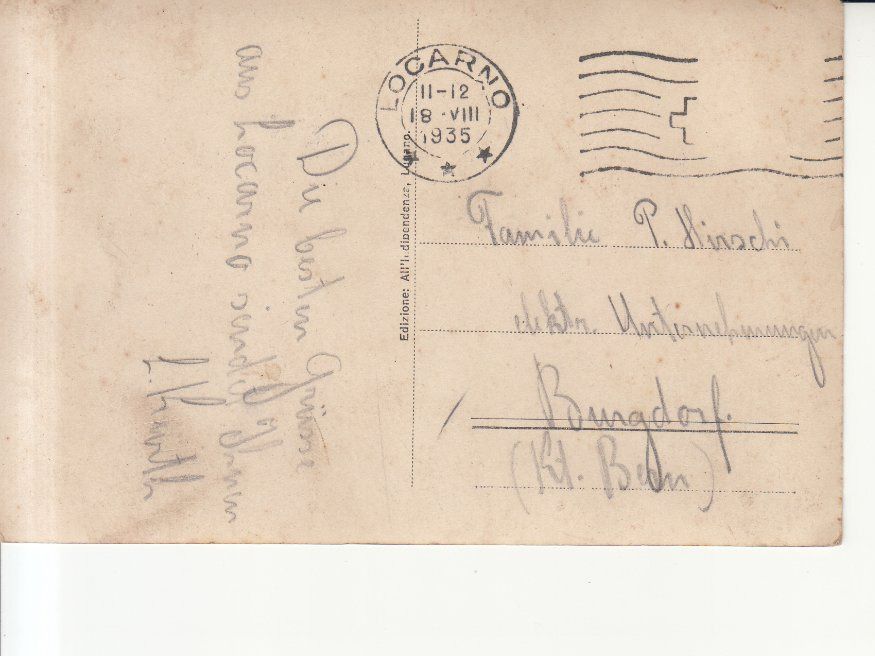 Die besten Grüsse
aus Locarno sendet Ihnen
LOCARNO
11-12
18 VIII
1935
Edizione: All'Indipendenza, Locarno
Familie P. Hirschi
elektr. Unternehmungen
Burgdorf.
(Kt. Bern)